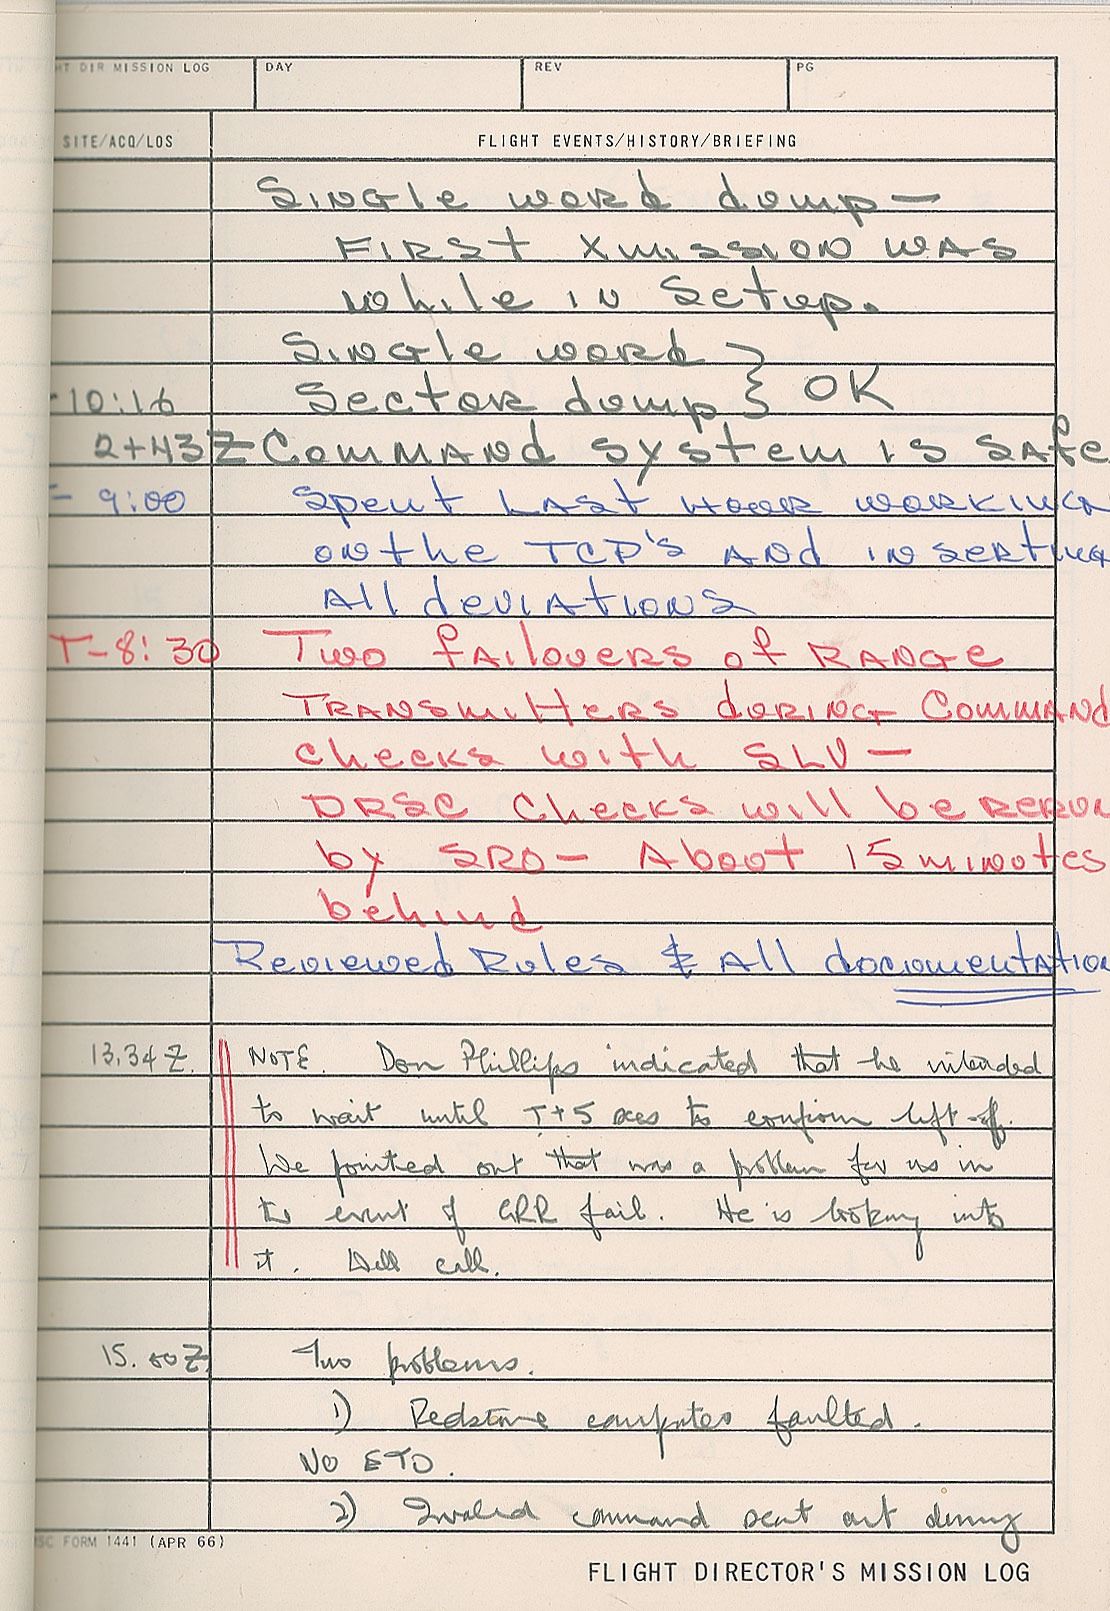 T DIR MISSION LOG DAY REV PG
SITE/ACQ/LOS FLIGHT EVENTS/HISTORY/BRIEFING
Single word dump —
First Xmission was
while in Setup.
Single word }
-10:16 Sector dump } OK
2+43Z Command system is safe
- 9:00 Spent last hour working
on the TCP's and inserting
All deviations
T-8:30 Two failovers of Range
Transmitters during Command
checks with SLV —
DRSC checks will be rerun
by SRO — About 15 minutes
behind
Reviewed Rules & All documentation
13.34 Z. NOTE. Don Phillips indicated that he intended
to wait until T+5 secs to confirm lift-off.
We pointed out that was a problem for us in
the event of GRR fail. He is looking into
it. Will call.
15.00Z Two problems.
1) Redstone computer faulted.
No ETO.
2) Invalid command sent out during
SC FORM 1441 (APR 66)
FLIGHT DIRECTOR'S MISSION LOG